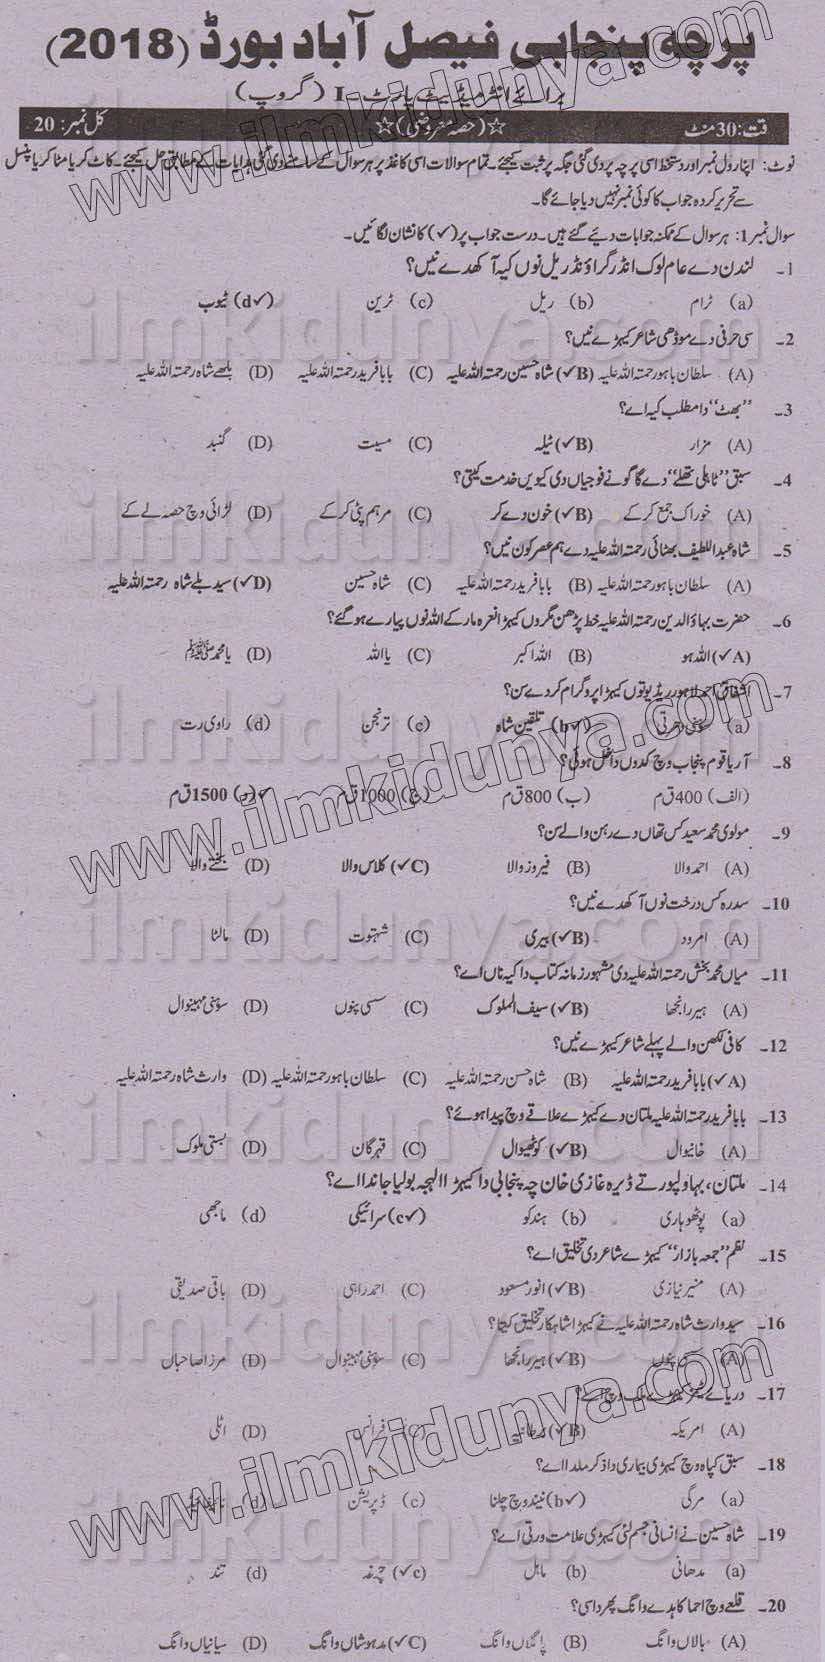 پرچہ پنجابی فیصل آباد بورڈ (2018)
برائے انٹرمیڈیٹ پارٹ - I (گروپ)
وقت: 30 منٹ ☆ (حصہ معروضی) ☆ کل نمبر: 20
نوٹ: اپنا رول نمبر اور دستخط اسی پرچہ پر دی گئی جگہ پر ثبت کیجئے۔ تمام سوالات اسی کاغذ پر ہر سوال کے سامنے دی گئی ہدایات کے مطابق حل کیجئے۔ کاٹ کر یا مٹا کر یا پنسل
سے تحریر کردہ جواب کا کوئی نمبر نہیں دیا جائے گا۔
سوال نمبر 1: ہر سوال کے ممکنہ جوابات دیئے گئے ہیں۔ درست جواب پر (✓) کا نشان لگائیں۔
1۔ لندن دے عام لوک انڈر گراؤنڈ ریل نوں کیہ آکھدے نیں؟
(a) ٹرام (b) ریل (c) ٹرین (d✓) ٹیوب
2۔ سی حرفی دے موڈھی شاعر کیہڑے نیں؟
(A) سلطان باہو رحمتہ اللہ علیہ (B✓) شاہ حسین رحمتہ اللہ علیہ (C) بابا فرید رحمتہ اللہ علیہ (D) بلھے شاہ رحمتہ اللہ علیہ
3۔ "بھٹ" دا مطلب کیہ اے؟
(A) مزار (B✓) ٹیلہ (C) مسیت (D) گنبد
4۔ سبق "ٹاہلی تھلے" دے گاگو نے فوجیاں دی کیویں خدمت کیتی؟
(A) خوراک جمع کر کے (B✓) خون دے کر (C) مرہم پٹی کر کے (D) لڑائی وچ حصہ لے کے
5۔ شاہ عبداللطیف بھٹائی رحمتہ اللہ علیہ دے ہم عصر کون نیں؟
(A) سلطان باہو رحمتہ اللہ علیہ (B) بابا فرید رحمتہ اللہ علیہ (C) شاہ حسین (D✓) سید بلے شاہ رحمتہ اللہ علیہ
6۔ حضرت بہاؤالدین رحمتہ اللہ علیہ خط پڑھن مگروں کیہڑا نعرہ مار کے اللہ نوں پیارے ہو گئے؟
(A✓) اللہ ہو (B) اللہ اکبر (C) یا اللہ (D) یا محمد ﷺ
7۔ اشفاق احمد لاہور ریڈیو توں کیہڑا پروگرام کردے سن؟
(a) سوہنی دھرتی (b✓) تلقین شاہ (c) ترنجن (d) راوی رت
8۔ آریا قوم پنجاب وچ کدوں داخل ہوئی؟
(الف) 400 ق م (ب) 800 ق م (ج) 1000 ق م (د✓) 1500 ق م
9۔ مولوی محمد سعید کس تھاں دے رہن والے سن؟
(A) احمد والا (B) فیروز والا (C✓) کلاس والا (D) بجھے والا
10۔ سدرہ کس درخت نوں آکھدے نیں؟
(A) امرود (B✓) بیری (C) شہتوت (D) مالٹا
11۔ میاں محمد بخش رحمتہ اللہ علیہ دی مشہور زمانہ کتاب دا کیہ ناں اے؟
(A) ہیر رانجھا (B✓) سیف الملوک (C) سسی پنوں (D) سوہنی مہینوال
12۔ کافی لکھن والے پہلے شاعر کیہڑے نیں؟
(A✓) بابا فرید رحمتہ اللہ علیہ (B) شاہ حسن رحمتہ اللہ علیہ (C) سلطان باہو رحمتہ اللہ علیہ (D) وارث شاہ رحمتہ اللہ علیہ
13۔ بابا فرید رحمتہ اللہ علیہ ملتان دے کیہڑے علاقے وچ پیدا ہوئے؟
(A) خانیوال (B✓) کوٹھیوال (C) قہرگان (D) بستی ملوک
14۔ ملتان، بہاولپور تے ڈیرہ غازی خان چہ پنجابی دا کیہڑا لہجہ بولیا جاندا اے؟
(a) پوٹھوہاری (b) ہندکو (c✓) سرائیکی (d) ماجھی
15۔ نظم "جمعہ بازار" کیہڑے شاعر دی تخلیق اے؟
(A) منیر نیازی (B✓) انور مسعود (C) احمد راہی (D) باقی صدیقی
16۔ سید وارث شاہ رحمتہ اللہ علیہ نے کیہڑا شاہکار تخلیق کیتا؟
(A) سسی پنوں (B✓) ہیر رانجھا (C) سوہنی مہینوال (D) مرزا صاحباں
17۔ دریائے ٹیمز کیہڑے ملک وچ اے؟
(A) امریکہ (B✓) برطانیہ (C) فرانس (D) اٹلی
18۔ سبق کپاہ وچ کیہڑی بیماری دا ذکر ملدا اے؟
(a) مرگی (b✓) نیند وچ چلنا (c) ڈپریشن (d) ٹائیفائیڈ
19۔ شاہ حسین نے انسانی جسم لئی کیہڑی علامت ورتی اے؟
(a) مدھانی (b) ماہل (c✓) چرخہ (d) تند
20۔ قلعے وچ احما کاہدے وانگ پھردا سی؟
(A) بالاں وانگ (B) پاگلاں وانگ (C✓) مدہوشاں وانگ (D) سیانیاں وانگ
www.ilmkidunya.com
ilmkidunya.com